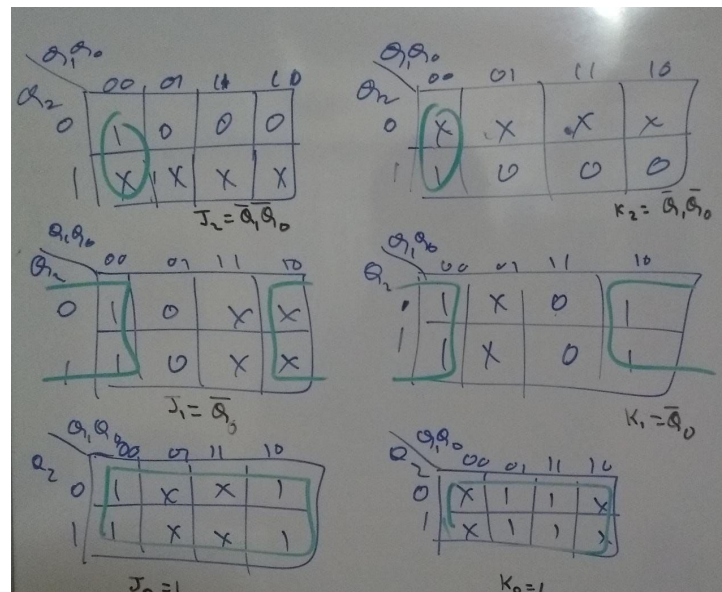 Q₁Q₀
Q₂ 00 01 11 10
0 1 0 0 0
1 X X X X
J₂ = Q̅₁Q̅₀
Q₁Q₀
Q₂ 00 01 11 10
0 X X X X
1 1 0 0 0
K₂ = Q̅₁Q̅₀
Q₁Q₀
Q₂ 00 01 11 10
0 1 0 X X
1 1 0 X X
J₁ = Q̅₀
Q₁Q₀
Q₂ 00 01 11 10
1 X 0 1
1 1 X 0 1
K₁ = Q̅₀
Q₁Q₀
Q₂ 00 01 11 10
0 1 X X 1
1 1 X X 1
J₀ = 1
Q₁Q₀
Q₂ 00 01 11 10
0 X 1 1 X
1 X 1 1 X
K₀ = 1